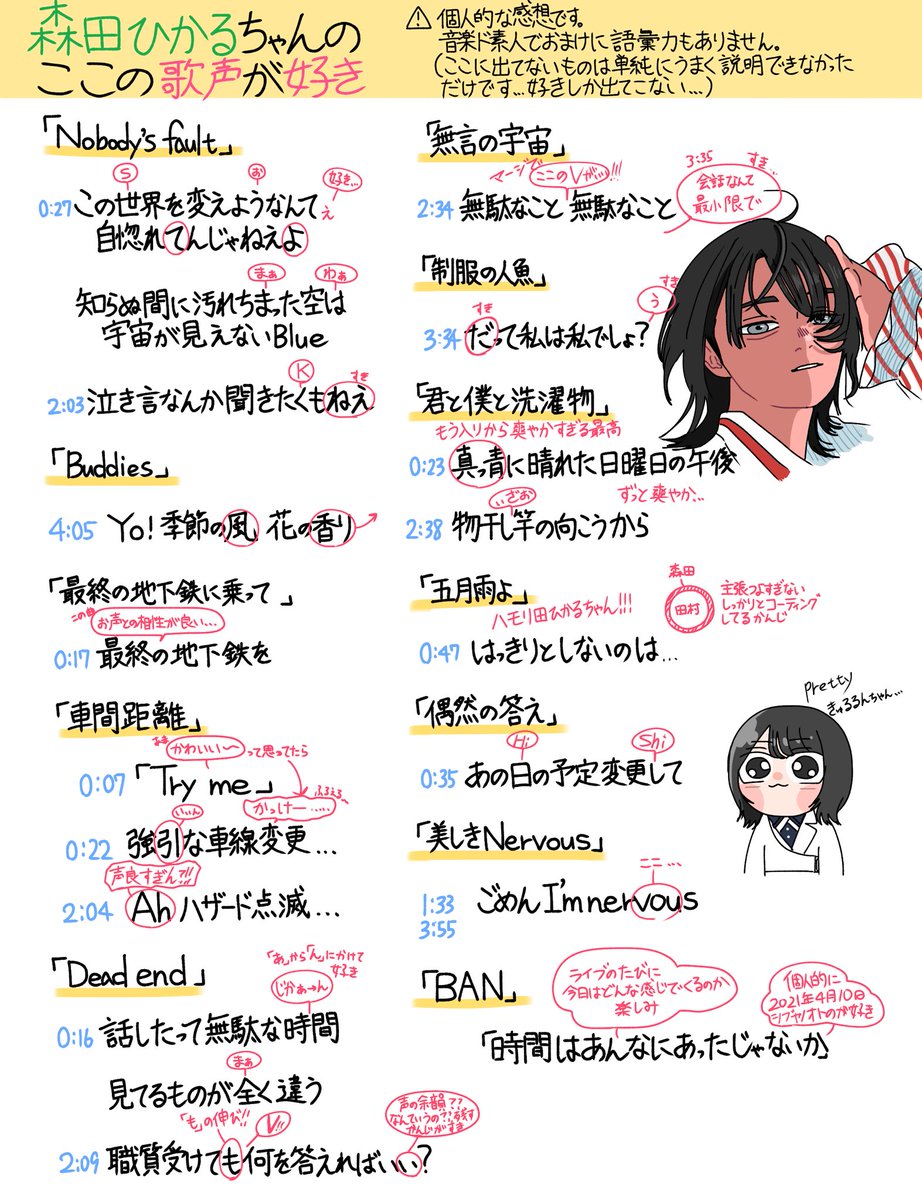 森田ひかるちゃんの
ここの歌声が好き
⚠ 個人的な感想です。
音楽ド素人でおまけに語彙力もありません。
(ここに出てないものは単純にうまく説明できなかった
だけです…好きしか出てこない…)
「Nobody's fault」
S
お
好き…
0:27 この世界を変えようなんてぇ
自惚れてんじゃねえよ
まぁ
わぁ
知らぬ間に汚れちまった空は
宇宙が見えないBlue
K
すき
2:03 泣き言なんか聞きたくもねえ
「Buddies」
4:05 Yo! 季節の風 花の香り
「最終の地下鉄に乗って」
この曲
お声との相性が良い…
0:17 最終の地下鉄を
「車間距離」
かわいい〜
って思ってたら
0:07 「Try me」
ふるえる〜
かっけー……
いぃん
0:22 強引な車線変更…
声良すぎん?!!
2:04 Ah ハザード点滅…
「Dead end」
「あ」から「ん」にかけて
好き
じかぁ→ん
0:16 話したって無駄な時間
まぁ
見てるものが全く違う
「も」の伸び!!
V!!
声の余韻??
なんていうの??残す
かんじがすき
2:09 職質受けても何を答えればいい?
「無言の宇宙」
マージで
ここのVが…!!!
2:34 無駄なこと 無駄なこと
3:35
すき…
会話なんて
最小限で
「制服の人魚」
すき
すき
う
3:34 だって私は私でしょ?
「君と僕と洗濯物」
もう入りから爽やかすぎる最高
0:23 真っ青に晴れた日曜日の午後
ぃざお
ずっと爽やか…
2:38 物干し竿の向こうから
「五月雨よ」
ハモリ田ひかるちゃん!!!
森田
田村
主張つよすぎない
しっかりとコーティング
してるかんじ
0:47 はっきりとしないのは…
「偶然の答え」
Hi
Shi
0:35 あの日の予定変更して
pretty
きゅるるんちゃん…
「美しきNervous」
ここ…
1:33
3:55
ごめん I'm nervous
「BAN」
ライブのたびに
今日はどんな感じでくるのか
楽しみ
個人的に
2021年4月10日
シブヤノオトのが好き
「時間はあんなにあったじゃないか」